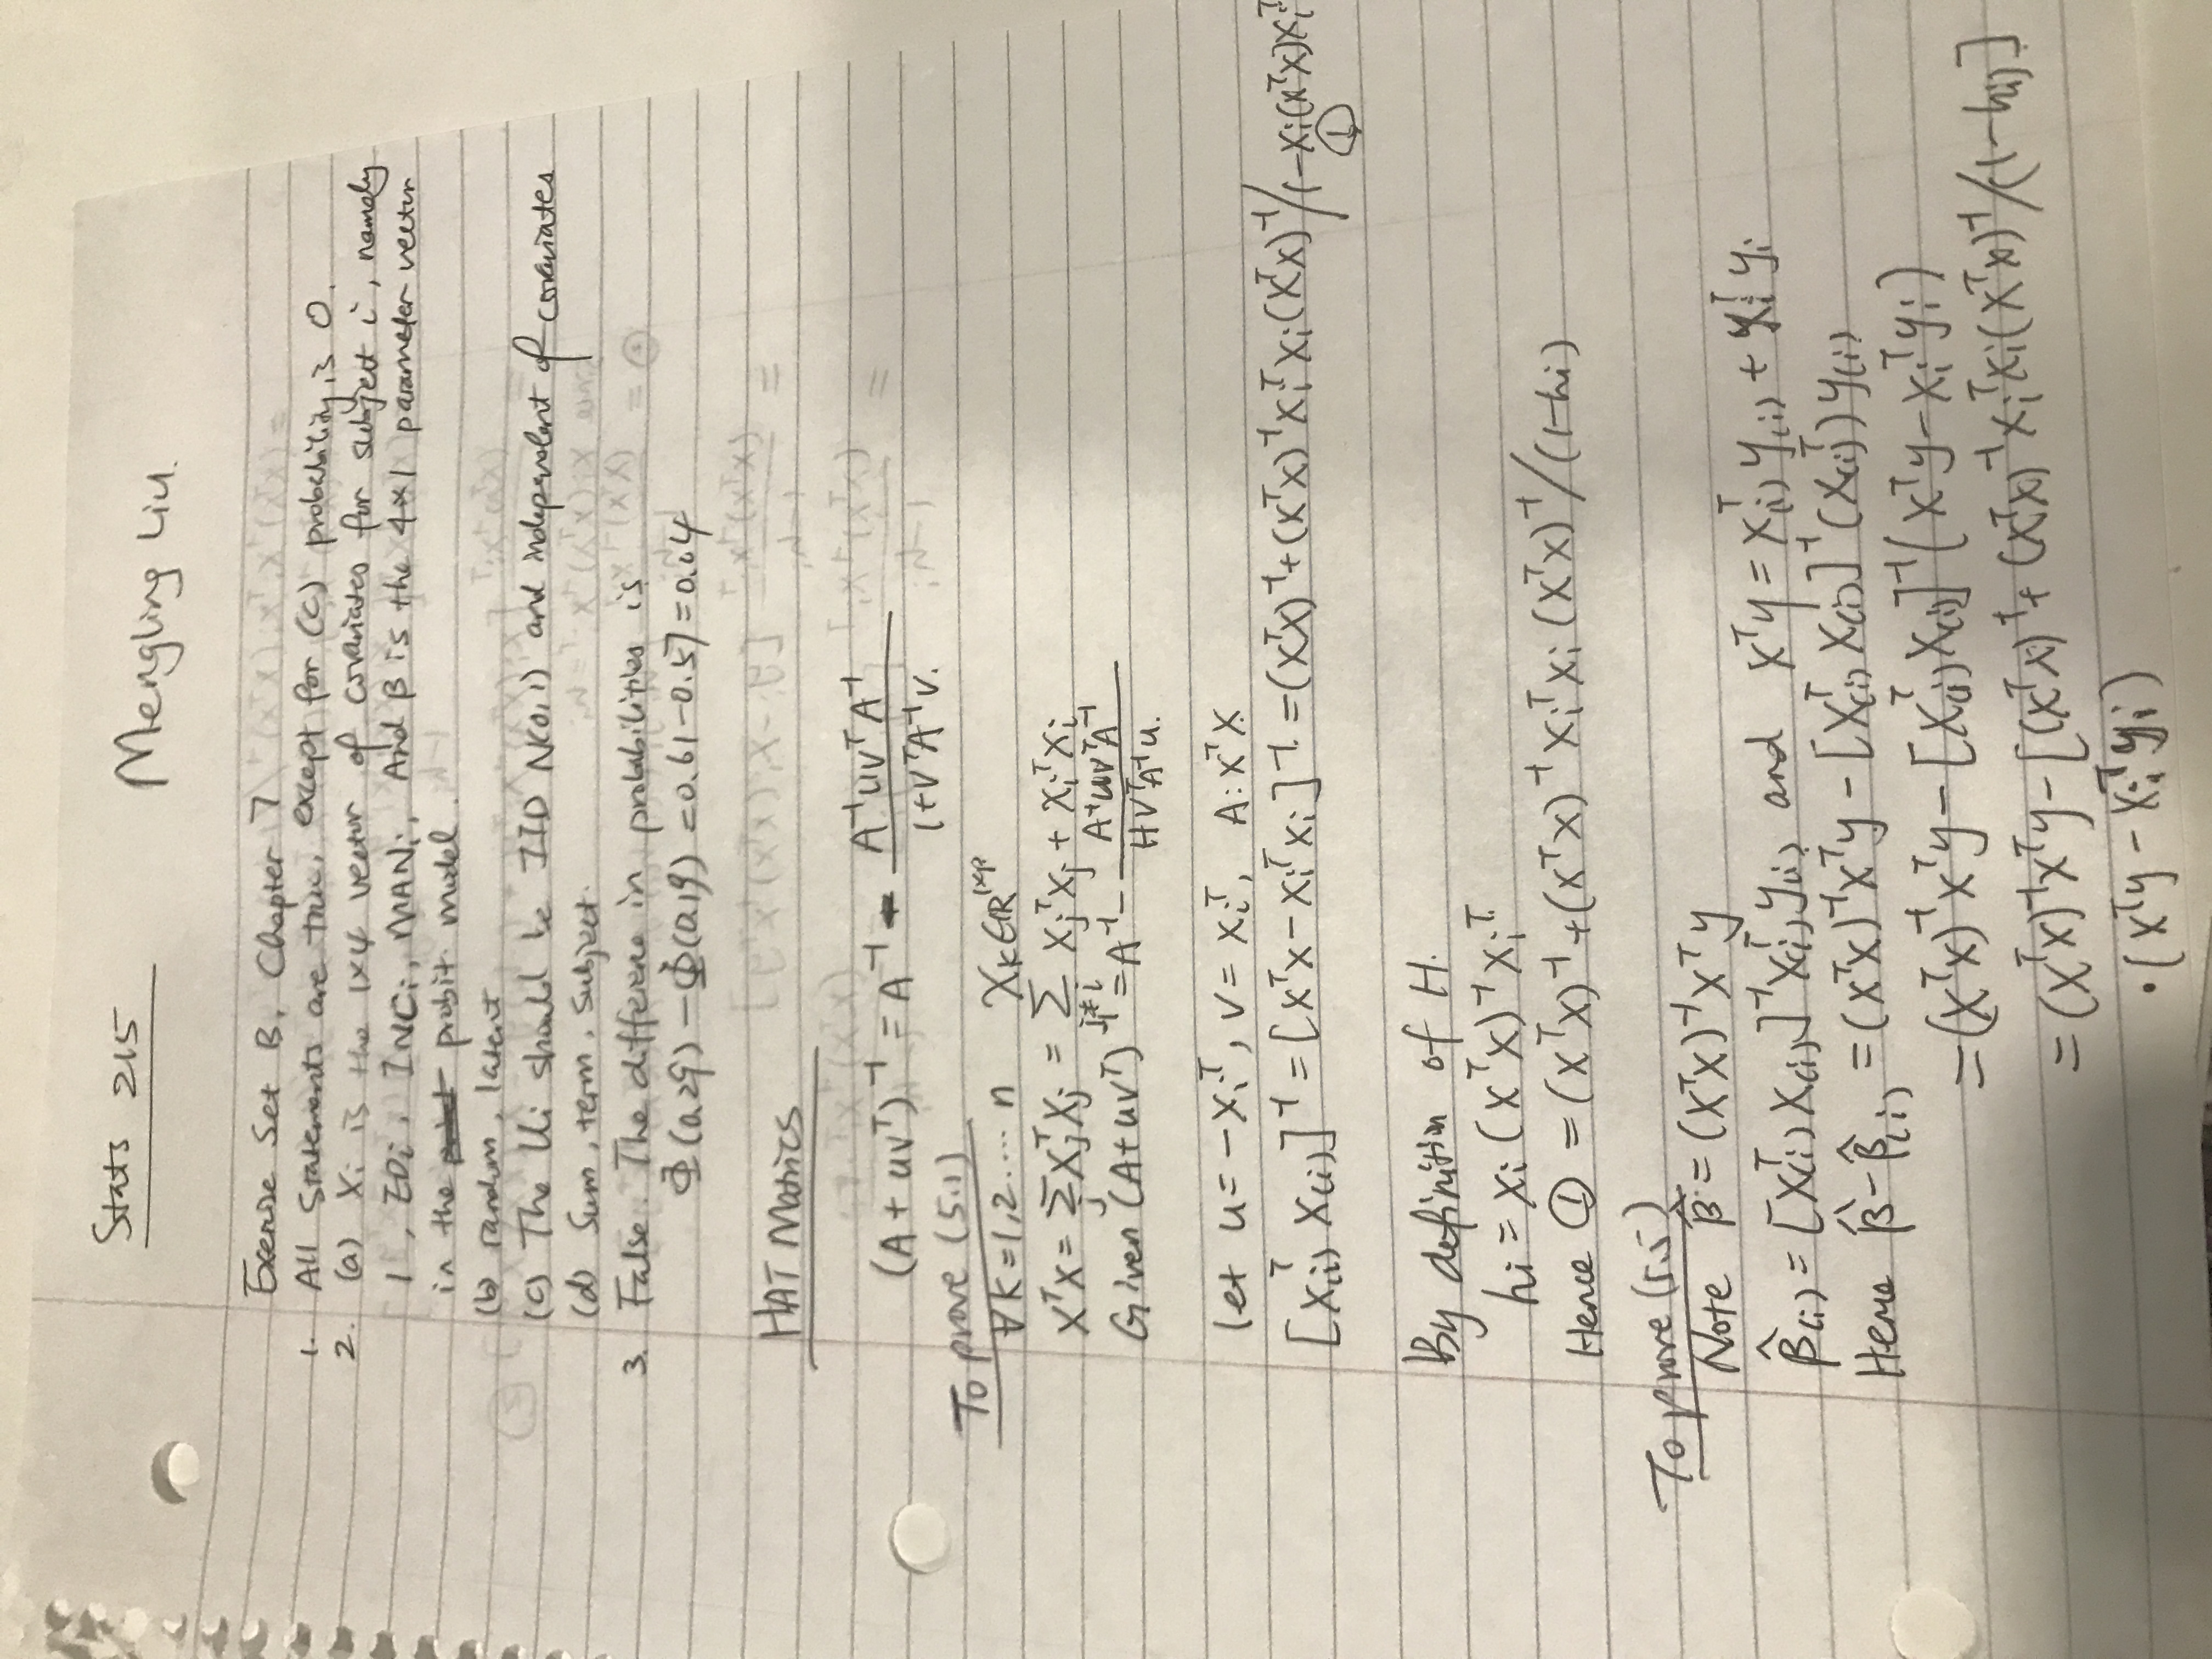 Stats 215
Mengling Liu.
Exercise Set B, Chapter 7
1. All statements are true, except for (c) probability is 0.
2. (a) Xi is the 1×4 vector of covariates for subject i, namely
1, EDi, INCi, MANi, And β is the 4×1 parameter vector
in the probit model.
(b) random, latent
(c) The Ui should be IID N(0,1) and independent of covariates
(d) Sum, term, subject.
3. False. The difference in probabilities is
Φ(0.29) − Φ(0.19) = 0.61 − 0.57 = 0.04
HAT Matrics
(A + uvᵀ)⁻¹ = A⁻¹ − A⁻¹uvᵀA⁻¹ / 1+vᵀA⁻¹v.
To prove (5.1)
∀K=1,2....n Xₖ∈ℝ¹ˣᵖ
XᵀX = Σⱼ XⱼᵀXⱼ = Σⱼ≠ᵢ XⱼᵀXⱼ + XᵢᵀXᵢ
Given (A+uvᵀ)⁻¹ = A⁻¹ − A⁻¹uvᵀA⁻¹ / 1+VᵀA⁻¹u.
let u = −Xᵢᵀ, v = Xᵢᵀ, A: XᵀX
[X₍ᵢ₎ᵀ X₍ᵢ₎]⁻¹ = [XᵀX − XᵢᵀXᵢ]⁻¹ = (XᵀX)⁻¹ + (XᵀX)⁻¹XᵢᵀXᵢ(XᵀX)⁻¹/(1−Xᵢ(XᵀX)Xᵢᵀ
①
By definition of H.
hi = Xᵢ(XᵀX)⁻¹Xᵢᵀ
Hence ① = (XᵀX)⁻¹ + (XᵀX)⁻¹XᵢᵀXᵢ(XᵀX)⁻¹/(1−hi)
To prove (5.5)
Note β̂ = (XᵀX)⁻¹Xᵀy
β̂₍ᵢ₎ = [X₍ᵢ₎ᵀX₍ᵢ₎]⁻¹X₍ᵢ₎ᵀy₍ᵢ₎ and Xᵀy = X₍ᵢ₎ᵀy₍ᵢ₎ + Xᵢᵀyᵢ
Hence β̂ − β̂₍ᵢ₎ = (XᵀX)⁻¹Xᵀy − [X₍ᵢ₎ᵀX₍ᵢ₎]⁻¹(X₍ᵢ₎ᵀ)y₍ᵢ₎
= (XᵀX)⁻¹Xᵀy − [X₍ᵢ₎ᵀX₍ᵢ₎]⁻¹(Xᵀy − Xᵢᵀyᵢ)
= (XᵀX)⁻¹Xᵀy − [(XᵀX)⁻¹ + (XᵀX)⁻¹XᵢᵀXᵢ(XᵀX)⁻¹/(1−hi)]
·(Xᵀy − Xᵢᵀyᵢ)